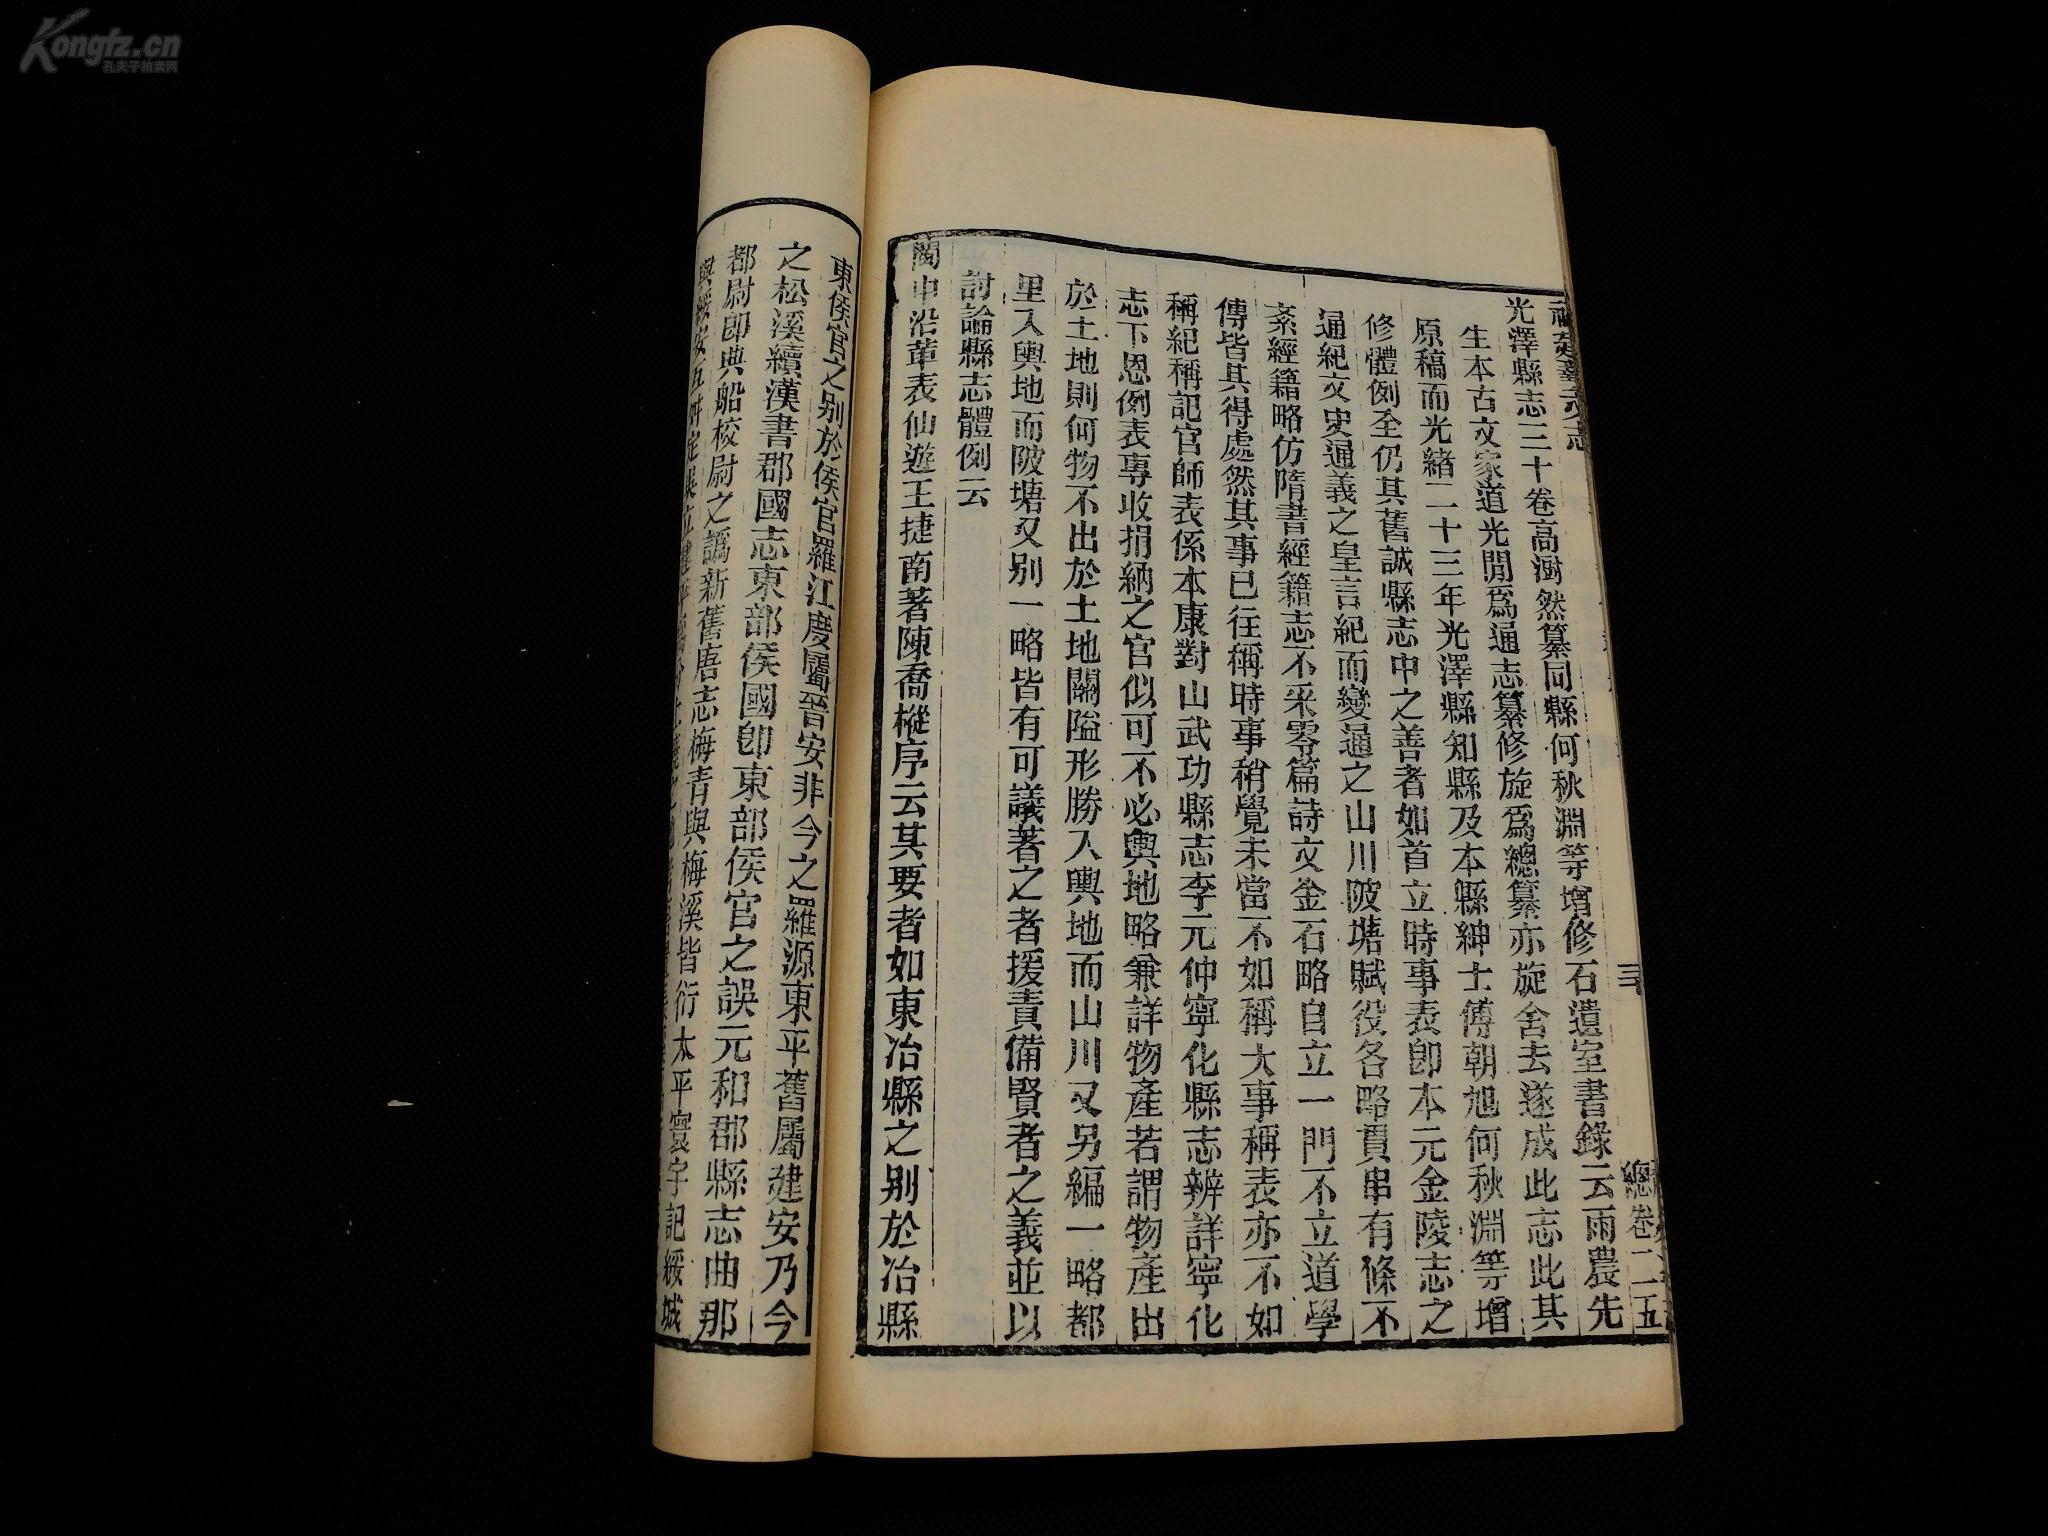 光澤縣志三十卷高澍然纂同縣何秋淵等增修石遺室書錄云雨農先
生本古文家道光間爲通志纂修旋爲總纂亦旋舍去遂成此志此其
原稿而光緒二十三年光澤縣知縣及本縣紳士傅朝旭何秋淵等增
修體例全仍其舊誠縣志中之善者如首立時事表卽本元金陵志之
通紀文史通義之皇言紀而變通之山川陂塘賦役各略貫串有條不
紊經籍略仿隋書經籍志不采零篇詩文金石略自立一門不立道學
傳皆其得處然其事已往稱時事稍覺未當不如稱大事稱表亦不如
稱紀稱記官師表係本康對山武功縣志李元仲寧化縣志辨詳寧化
志下恩例表專收捐納之官似可不必輿地略兼詳物產若謂物產出
於土地則何物不出於土地關隘形勝入輿地而山川又另編一略都
里入輿地而陂塘又別一略皆有可議著之者援責備賢者之義並以
討論縣志體例云
閩中沿革表仙遊王捷南著陳喬樅序云其要者如東冶縣之別於冶縣
東侯官之別於侯官羅江度屬晉安非今之羅源東平舊屬建安乃今
之松溪續漢書郡國志東部侯國卽東部侯官之誤元和郡縣志曲那
都尉卽典船校尉之譌新舊唐志梅青與梅溪皆衍太平寰宇記綏城
福建藝文志
總卷二
五
Kongfz.cn
孔夫子拍卖网